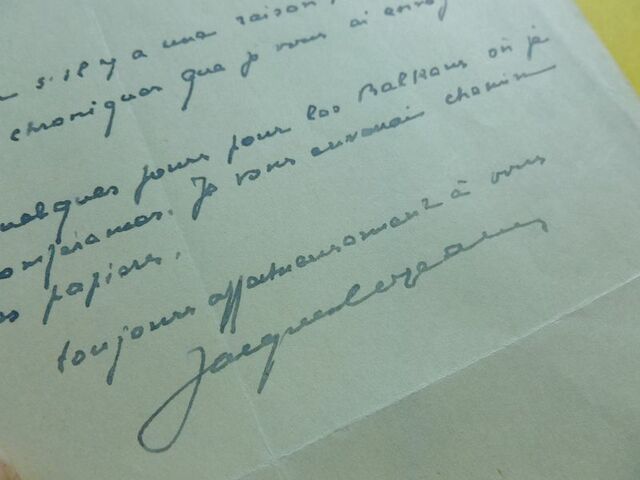 s'il y a une raison,
chroniques que je vous ai envoy
uelques jours pour les Balkans où je
onférences. Je vous enverrai chemin
papiers.
toujours affectueusement à vous
Jacques